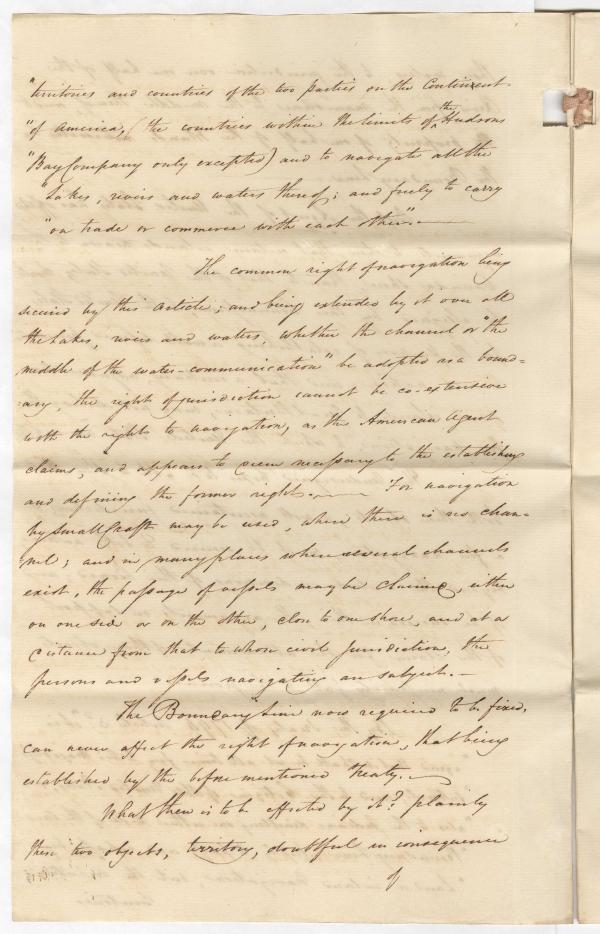 "territories and countries of the two parties on the Continent
"of America, (the countries within the limits of the Hudsons
"Bay Company only excepted) and to navigate all the
"Lakes, rivers and waters thereof; and freely to carry
"on trade or commerce with each other".
The common right of navigation being
secured by this article; and being extended by it over all
the Lakes, rivers and waters, whether the channel or "the
middle of the water-communication" be adopted as a bound=
=ary, the right of jurisdiction cannot be co-extensive
with the rights to navigation, as the American Agent
claims, and appears to deem necessary to the establishing
and defining the former right. For navigation
by small Craft may be used, where there is no chan=
=nel; and in many places where several channels
exist, the passage of vessels may be claimed, either
on one side or on the other, close to one shore, and at a
distance from that to whose civil jurisdiction, the
persons and vessels navigating are subject.
The Boundary Line now required to be fixed,
can never affect the right of navigation, that being
established by the before mentioned Treaty.
What then is to be effected by it? plainly
these two objects, territory, doubtful in consequence
of